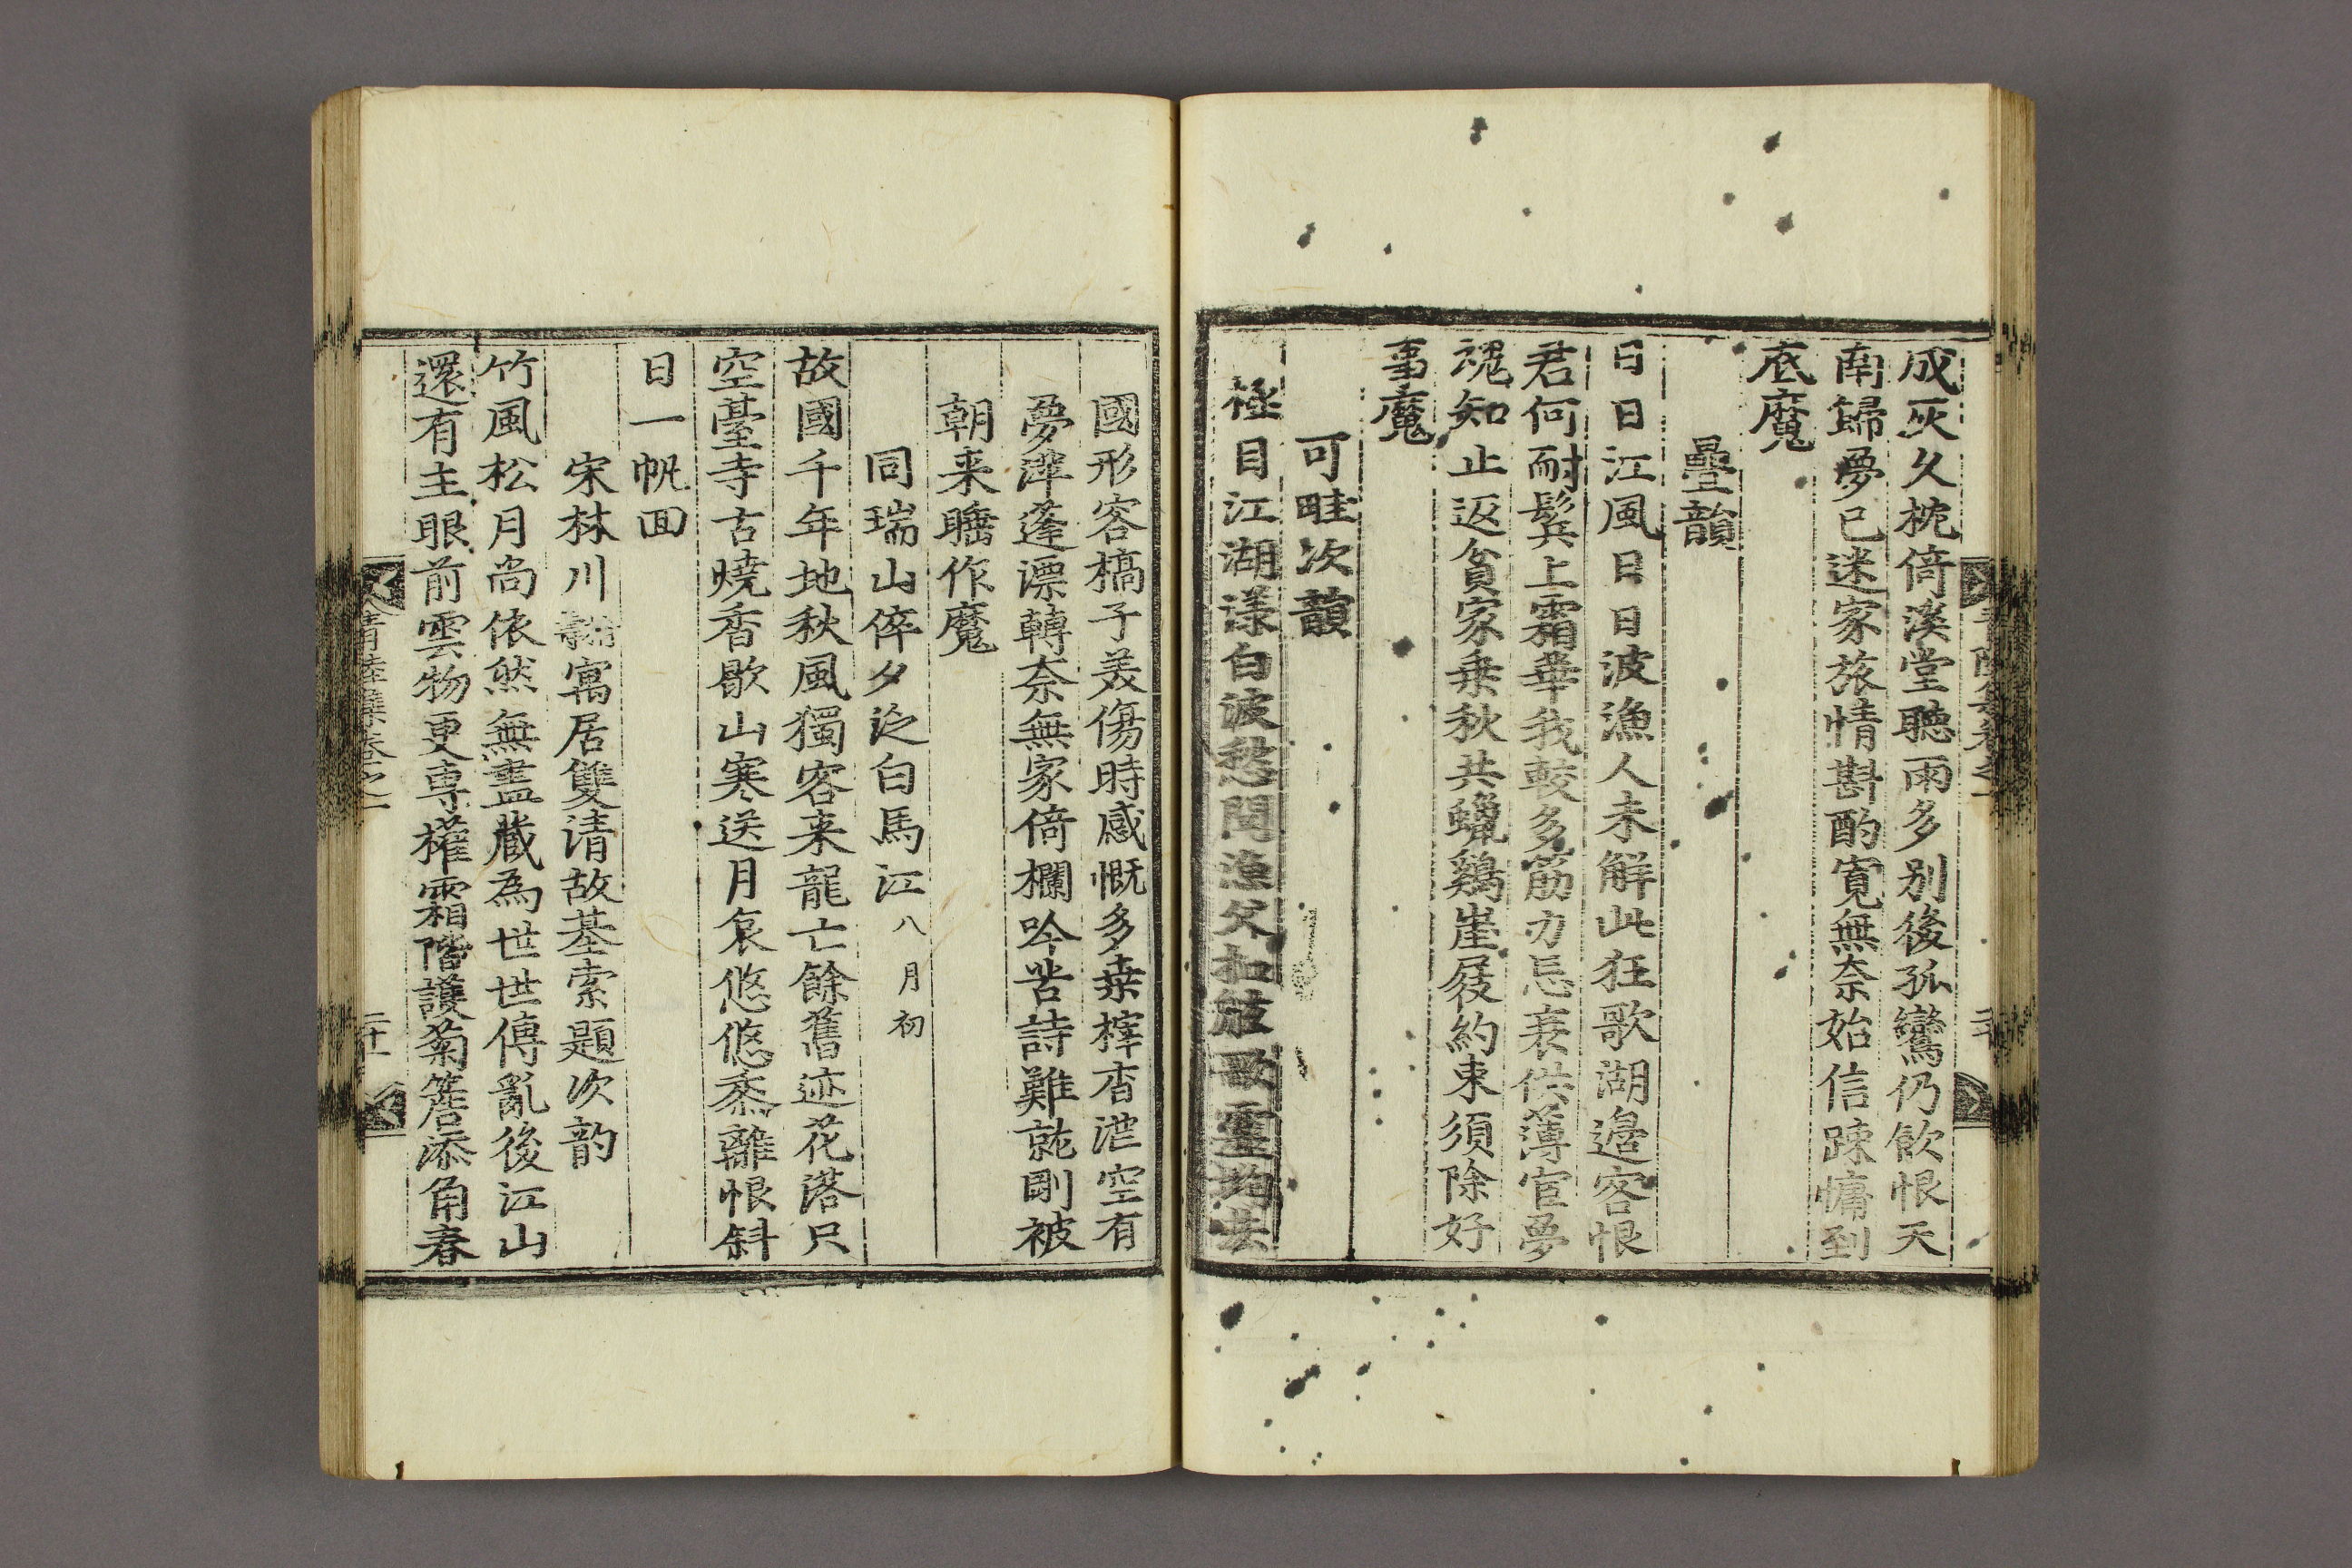 成灰久枕倚溪堂聽雨多別後孤鸞仍飮恨天
南歸夢已迷家旅情斟酌寬無奈始信踈慵到
底魔
疊韻
日日江風日日波漁人未解此狂歌湖邊客恨
君何耐鬂上霜華我較多筋力忌衰供薄官夢
魂知止返貧家乗秋共蠟鷄崖屐約束須除好
事魔
可畦次韻
極目江湖漾白波愁聞漁父扣舷歌靈均去
國形容槁子羙傷時感慨多桒梓杳茫空有
夢萍蓬漂轉奈無家倚欄吟苦詩難就剛被
朝来睡作魔
同瑞山倅夕泛白馬江八月初
故國千年地秋風獨客来龍亡餘舊迹花落只
空臺寺古燒香歇山寒送月哀悠悠黍離恨斜
日一帆回
宋林川寓居雙清故基索題次韵
竹風松月尚依然無盡藏為世世傳亂後江山
還有主眼前雲物更専權霜階護菊簷添角春